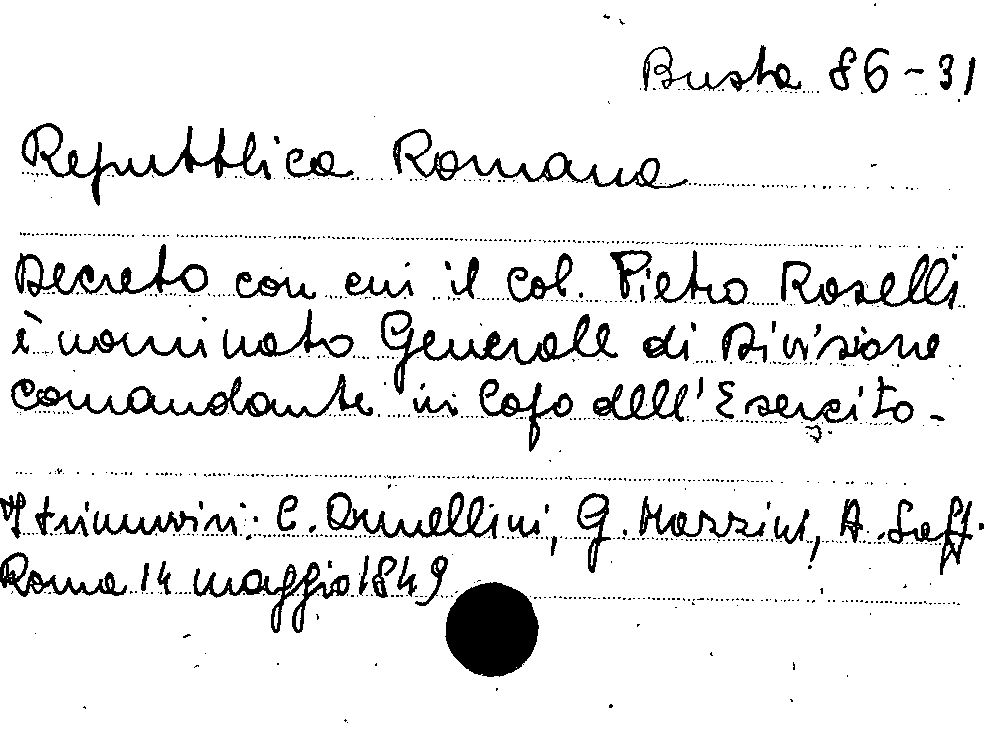 Busta 86-31
Repubblica Romana
Decreto con cui il Col. Pietro Roselli
è nominato Generale di Divisione
comandante in Capo dell'Esercito-
I triumviri: C. Armellini, G. Mazzini, A. Saffi
Roma 14 maggio 1849